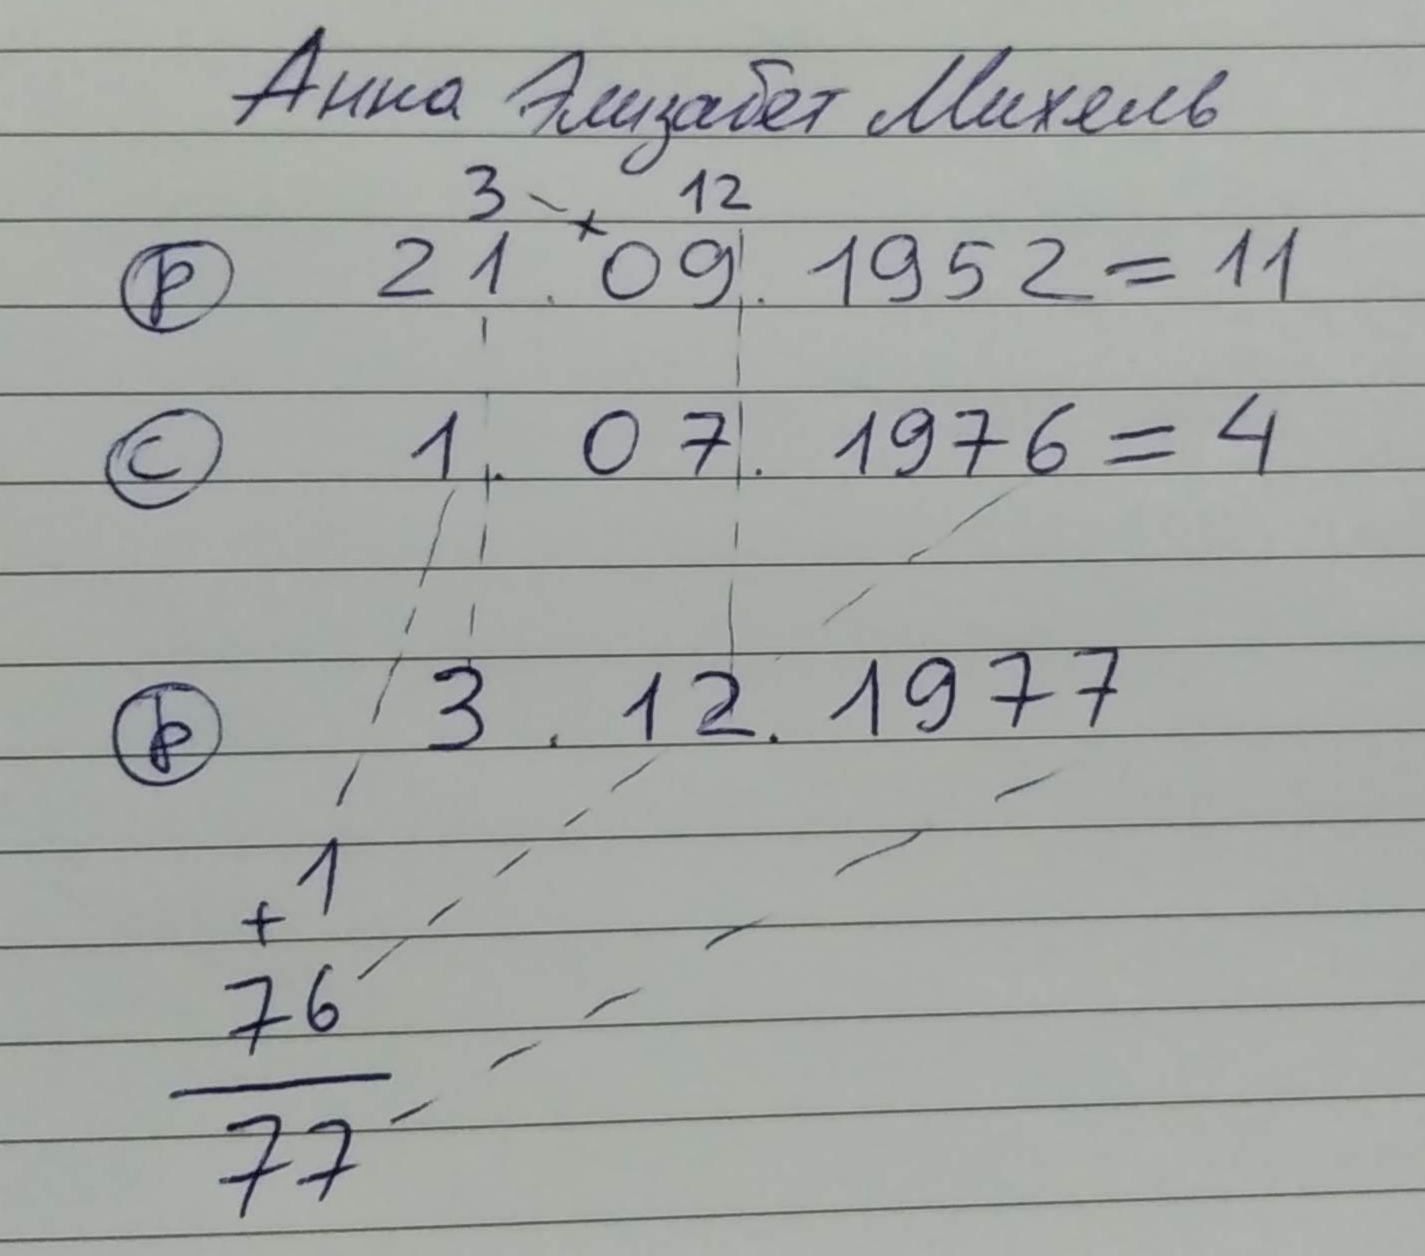 Анна Элизабет Михель
3 12
Р 21.09.1952 = 11
С 1.07.1976 = 4
3.12.1977
1
+
76
77